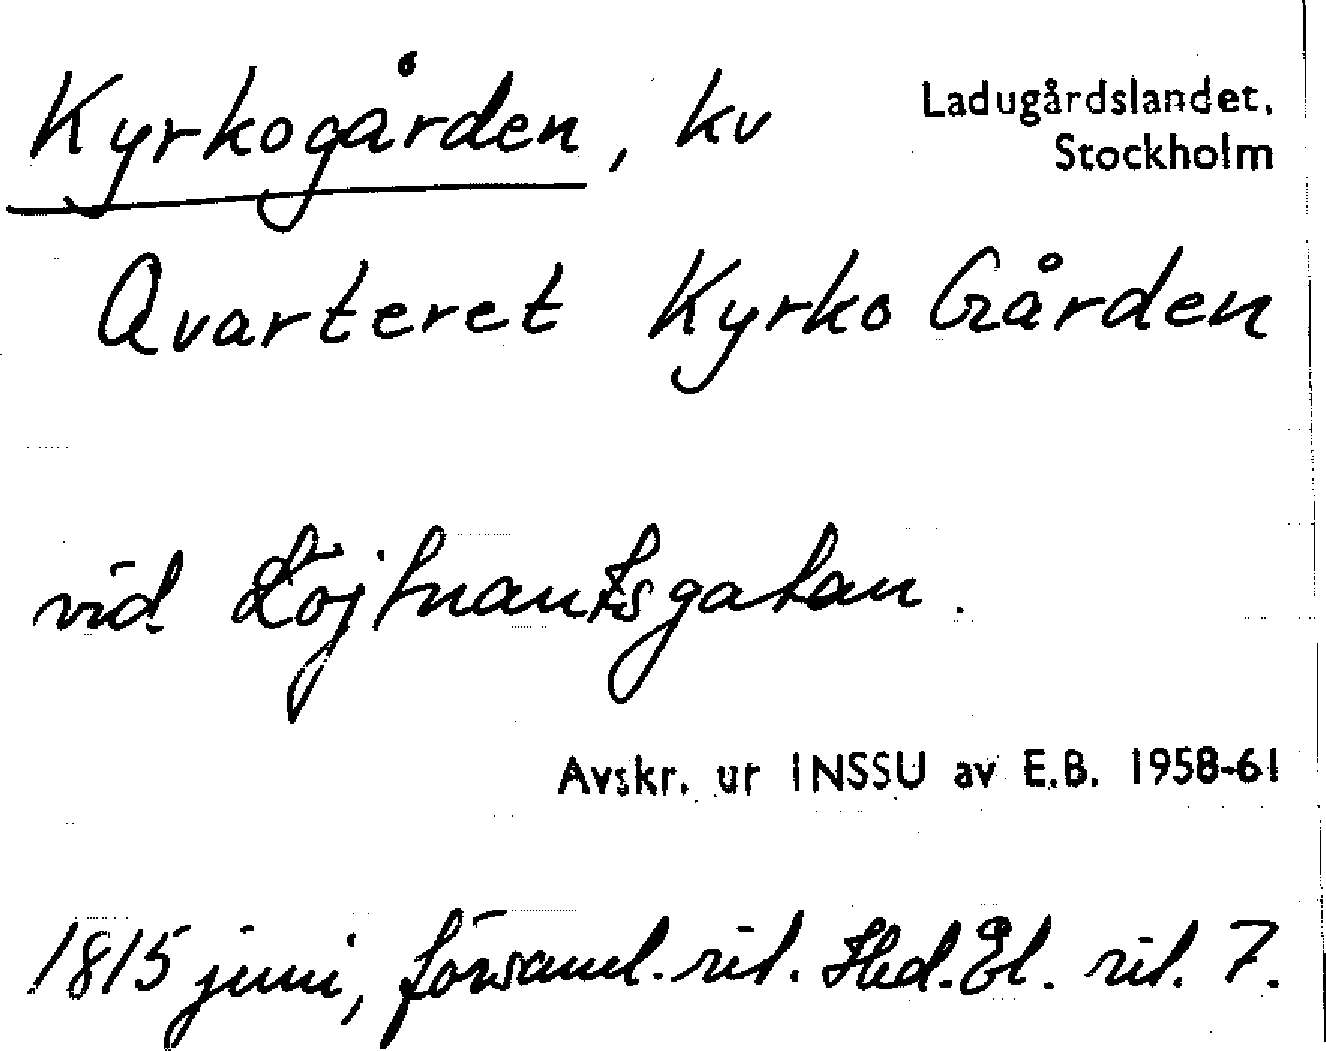 Kyrkogården, kv Ladugårdslandet,
Stockholm
Qvarteret Kyrko Gården
vid Löjtnantsgatan.
Avskr. ur INSSU av E.B. 1958-61
1815 juni, församl. rit. Hed. El. rit. 7.